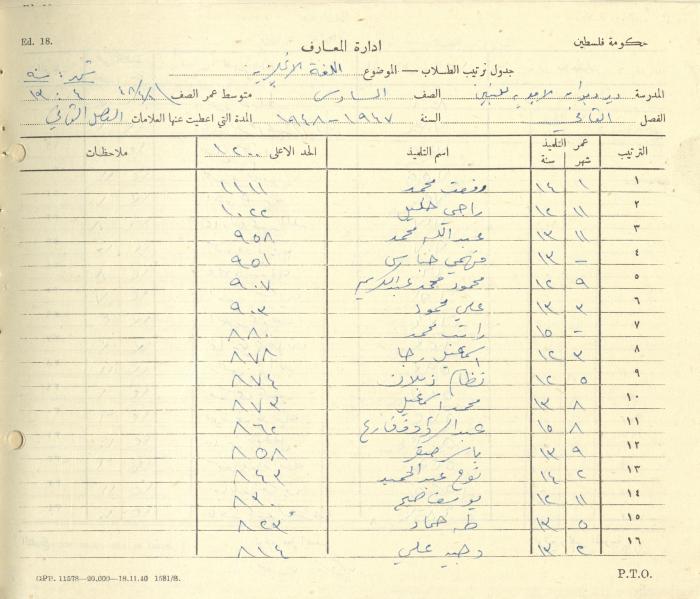 Ed. 18.
حكومة فلسطين
ادارة المعارف
جدول ترتيب الطلاب — الموضوع اللغة الانكليزية
المدرسة دير ديوان الاميرية للبنين الصف السادس متوسط عمر الصف
الفصل الثاني السنة ١٩٤٧ - ١٩٤٨ المدة التي اعطيت عنها العلامات الفصل الثاني
الترتيب عمر التلميذ شهر سنة اسم التلميذ الحد الاعلى ١٢٠٠ ملاحظات
١ ١ ١٤ رفعت محمد ١١١١
٢ ١١ ١٢ راجي خليل ١٠٢٢
٣ ١١ ١٣ عبد الله محمد ٩٥٨
٤ - ١٣ فهمي ٩٥١
٥ ٩ ١٢ محمود محمد عبد الكريم ٩٠٧
٦ ٣ ١٣ علي محمود ٩٠٣
٧ - ١٥ راتب محمد ٨٨٠
٨ ٣ ١٢ اسمعيل رجا ٨٧٨
٩ ٥ ١٢ نظام ٨٧٤
١٠ ٨ ١٣ محمد اسمعيل ٨٧٣
١١ ٨ ١٥ عبد الرؤوف فارع ٨٦٢
١٢ ٩ ١٣ ياسر صقر ٨٥٨
١٣ ٢ ١٤ نوح عبد الحميد ٨٤٣
١٤ ١١ ١٢ يوسف ٨٣٠
١٥ ٥ ١٣ طه حماد ٨٢٣
١٦ ٢ ١٣ وجيه علي ٨١٤
GPP. 11578—20.000—18.11.40 1581/B.
P.T.O.